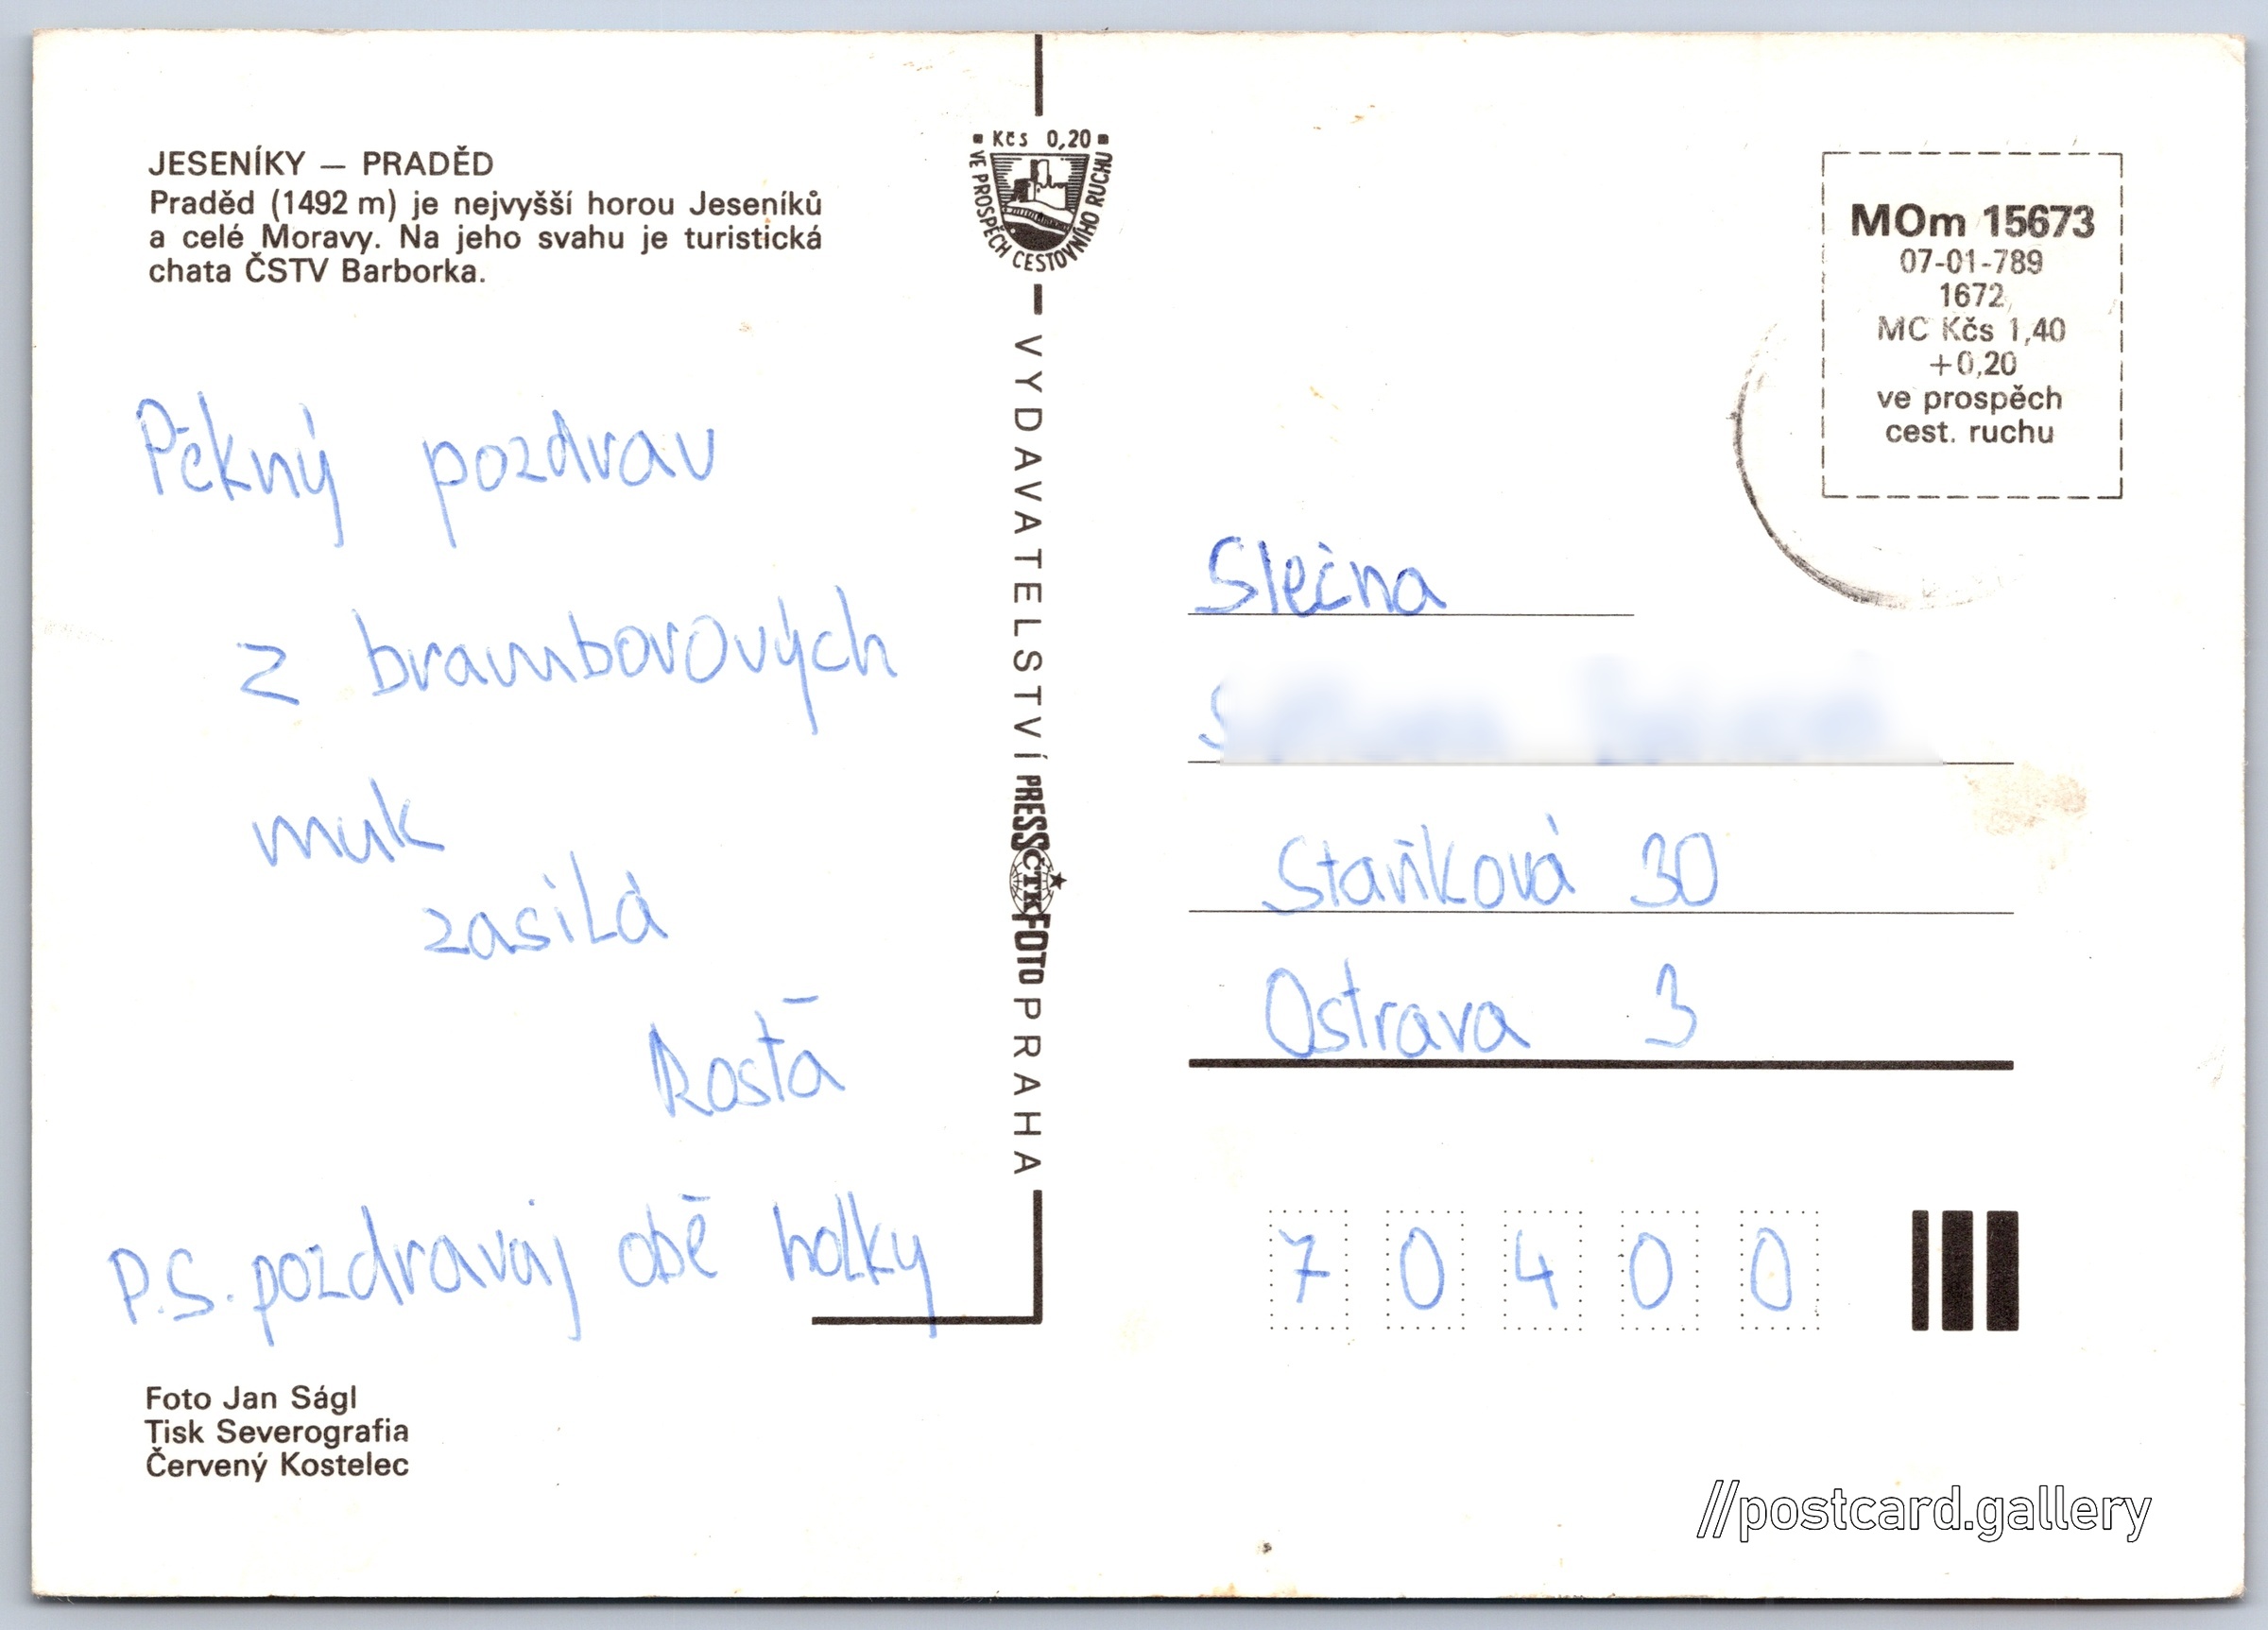 JESENÍKY — PRADĚD
Praděd (1492 m) je nejvyšší horou Jeseníků
a celé Moravy. Na jeho svahu je turistická
chata ČSTV Barborka.
Pěkný pozdrav
z bramborových
muk
zasílá
Rosťa
P.S. pozdravuj obě holky
Foto Jan Ságl
Tisk Severografia
Červený Kostelec
Kčs 0,20
VE PROSPĚCH CESTOVNÍHO RUCHU
VYDAVATELSTVÍ PRESSFOTO PRAHA
ČTK
MOm 15673
07-01-789
1672
MC Kčs 1,40
+0,20
ve prospěch
cest. ruchu
Slečna
Staňková 30
Ostrava 3
7 0 4 0 0
//postcard.gallery